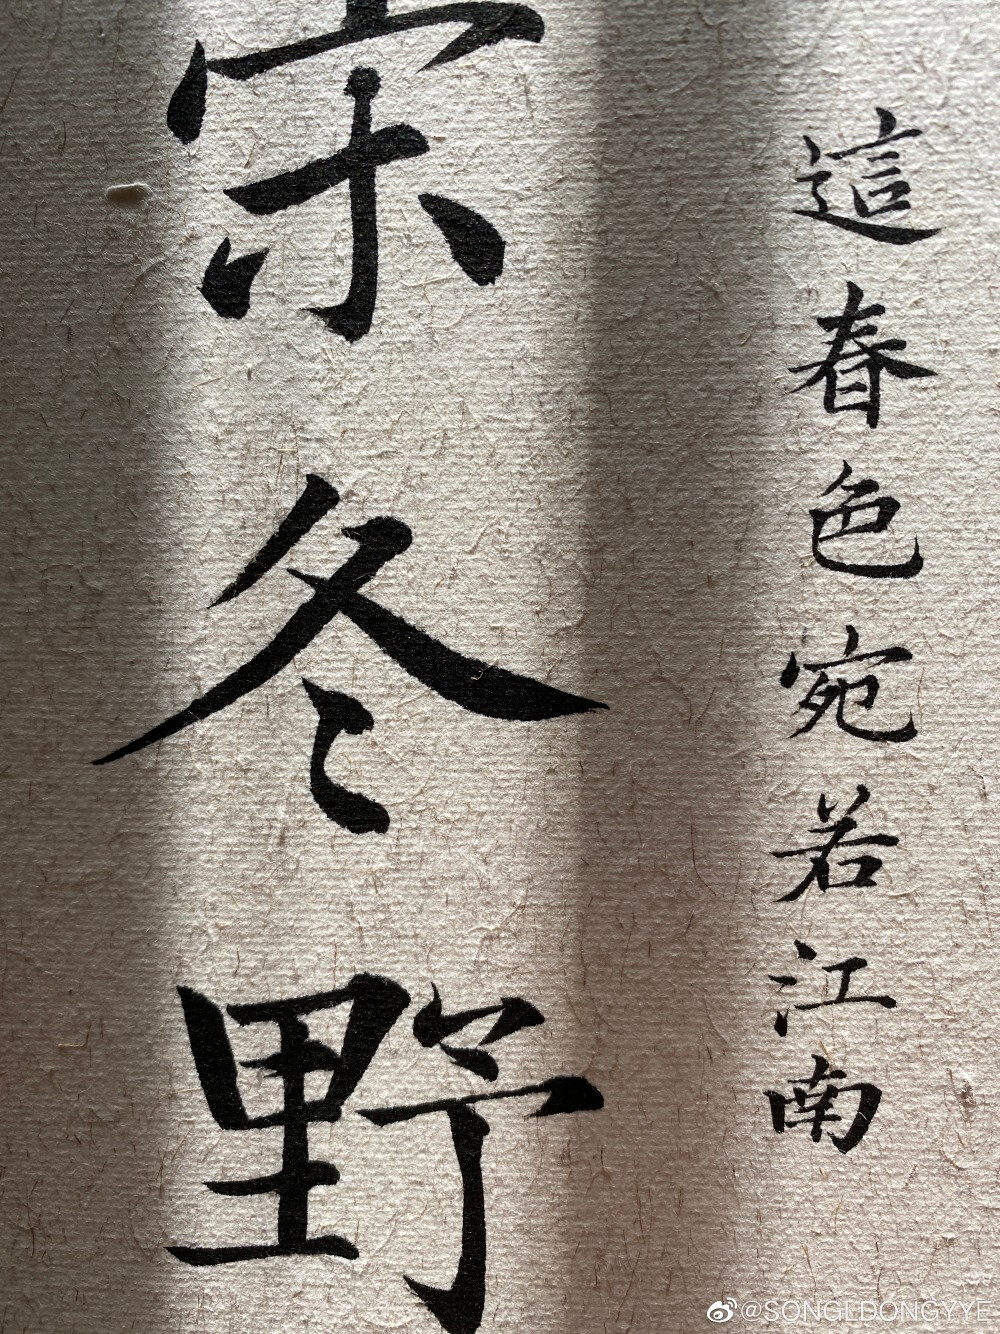 這春色宛若江南
宋冬野
@SONGLDONGYYE